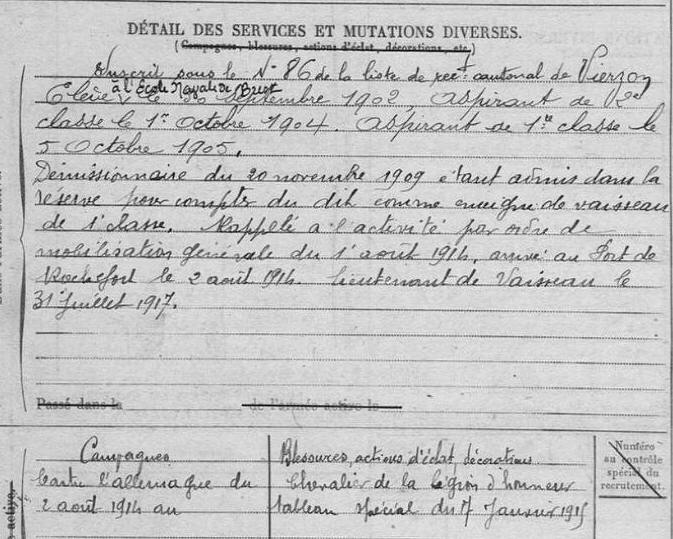 DÉTAIL DES SERVICES ET MUTATIONS DIVERSES.
(Campagnes, blessures, actions d'éclat, décorations, etc.)
Inscrit sous le N° 86 de la liste de recrt cantonal de Vierzon
à l'École Navale de Brest
Élève le septembre 1902, Aspirant de 2e
classe le 1er Octobre 1904. Aspirant de 1re classe le
5 Octobre 1905.
Démissionnaire du 20 novembre 1909 étant admis dans la
réserve pour compter du dit comme enseigne de vaisseau
de 1e classe. Rappelé à l'activité par ordre de
mobilisation générale du 1er août 1914, arrivé au Port de
Rochefort le 2 août 1914. Lieutenant de Vaisseau le
31 Juillet 1917.
Passé dans la de l'armée active le
Campagnes
Contre l'allemagne du
2 août 1914 au
Blessures, actions d'éclat, décorations
Chevalier de la Légion d'honneur
tableau spécial du 17 Janvier 1915
Numéro
au contrôle
spécial du
recrutement.
active.